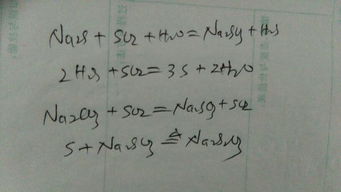 Na₂S + SO₂ + H₂O = Na₂SO₃ + H₂S
2H₂S + SO₂ = 3S + 2H₂O
Na₂CO₃ + SO₂ = Na₂SO₃ + CO₂
S + Na₂SO₃ ≜ Na₂S₂O₃